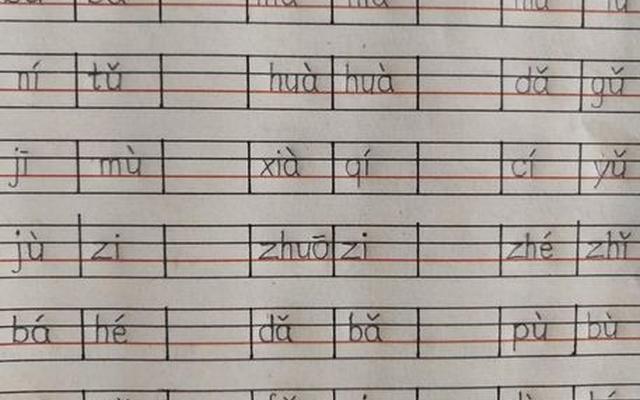 ní tǔ huà huà dǎ gǔ
jī mù xià qí cí yǔ
jù zi zhuō zi zhé zhǐ
bá hé dǎ bǎ pù bù